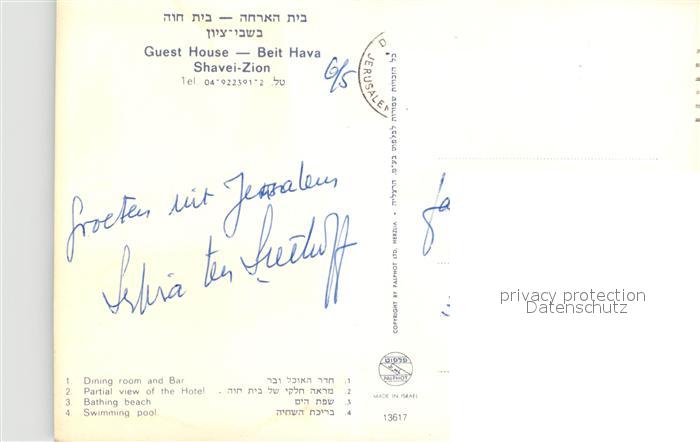 בית הארחה — בית חוה
בשבי־ציון
Guest House — Beit Hava
Shavei-Zion
Tel. 04-922391-2 טל.
6/5
JERUSALE
Groeten uit Jerusalem
ten
כל הזכויות שמורות לפלפוט בע״מ. הרצליה
COPYRIGHT BY PALPHOT LTD. HERZLIA
privacy protection
Datenschutz
1. Dining room and Bar חדר האוכל ובר .1
2. Partial view of the Hotel מראה חלקי של בית חוה . .2
3. Bathing beach שפת הים .3
4. Swimming pool בריכת השחיה .4
פלפוט
PALPHOT
MADE IN ISRAEL
13617